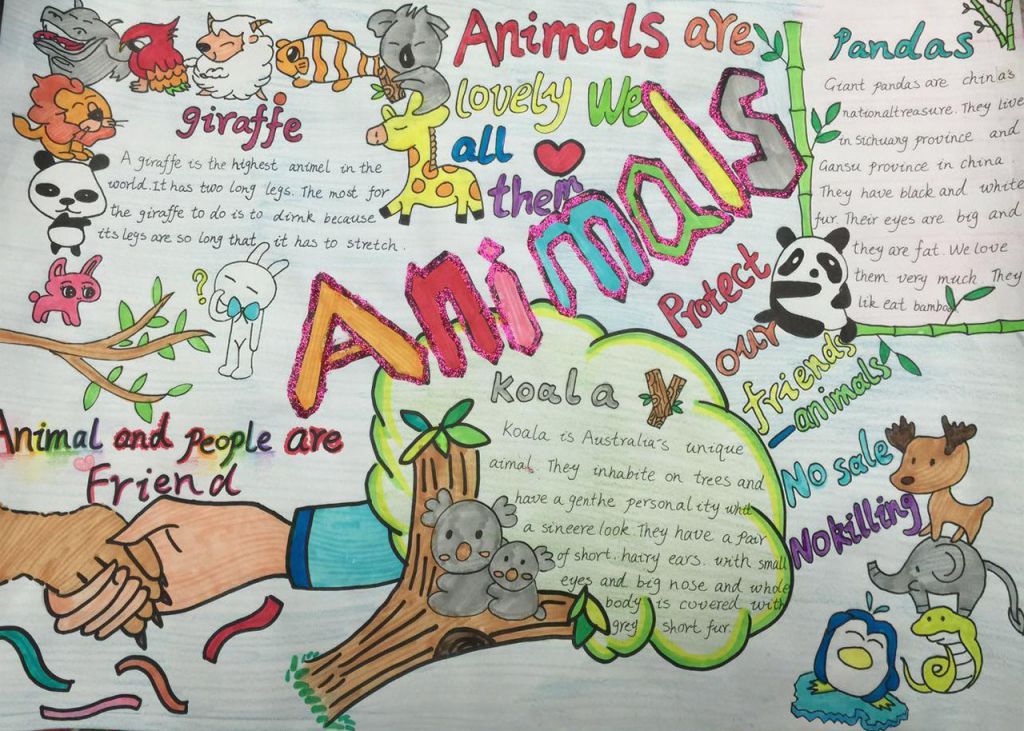 Animals are
lovely We
all
them
Animals
giraffe
A giraffe is the highest animel in the
world. It has two long legs. The most for
the giraffe to do is to dirnk because
its legs are so long that it has to stretch.
?
Pandas
Giant pandas are china's
nationaltreasure. They live
in sichuang province and
Gansu province in china
They have black and white
fur. Their eyes are big and
they are fat. We love
them very much They
lik eat bamboo
Protect
our
friends
—animals
No sale
No killing
Animal and people are
Friend
Koala
Koala is Australia's unique
aimal. They inhabite on trees and
have a genthe personality
a sineere look. They have a pair
of short. hairy ears. with small
eyes and big nose and whole
body is covered with
grey short fur.